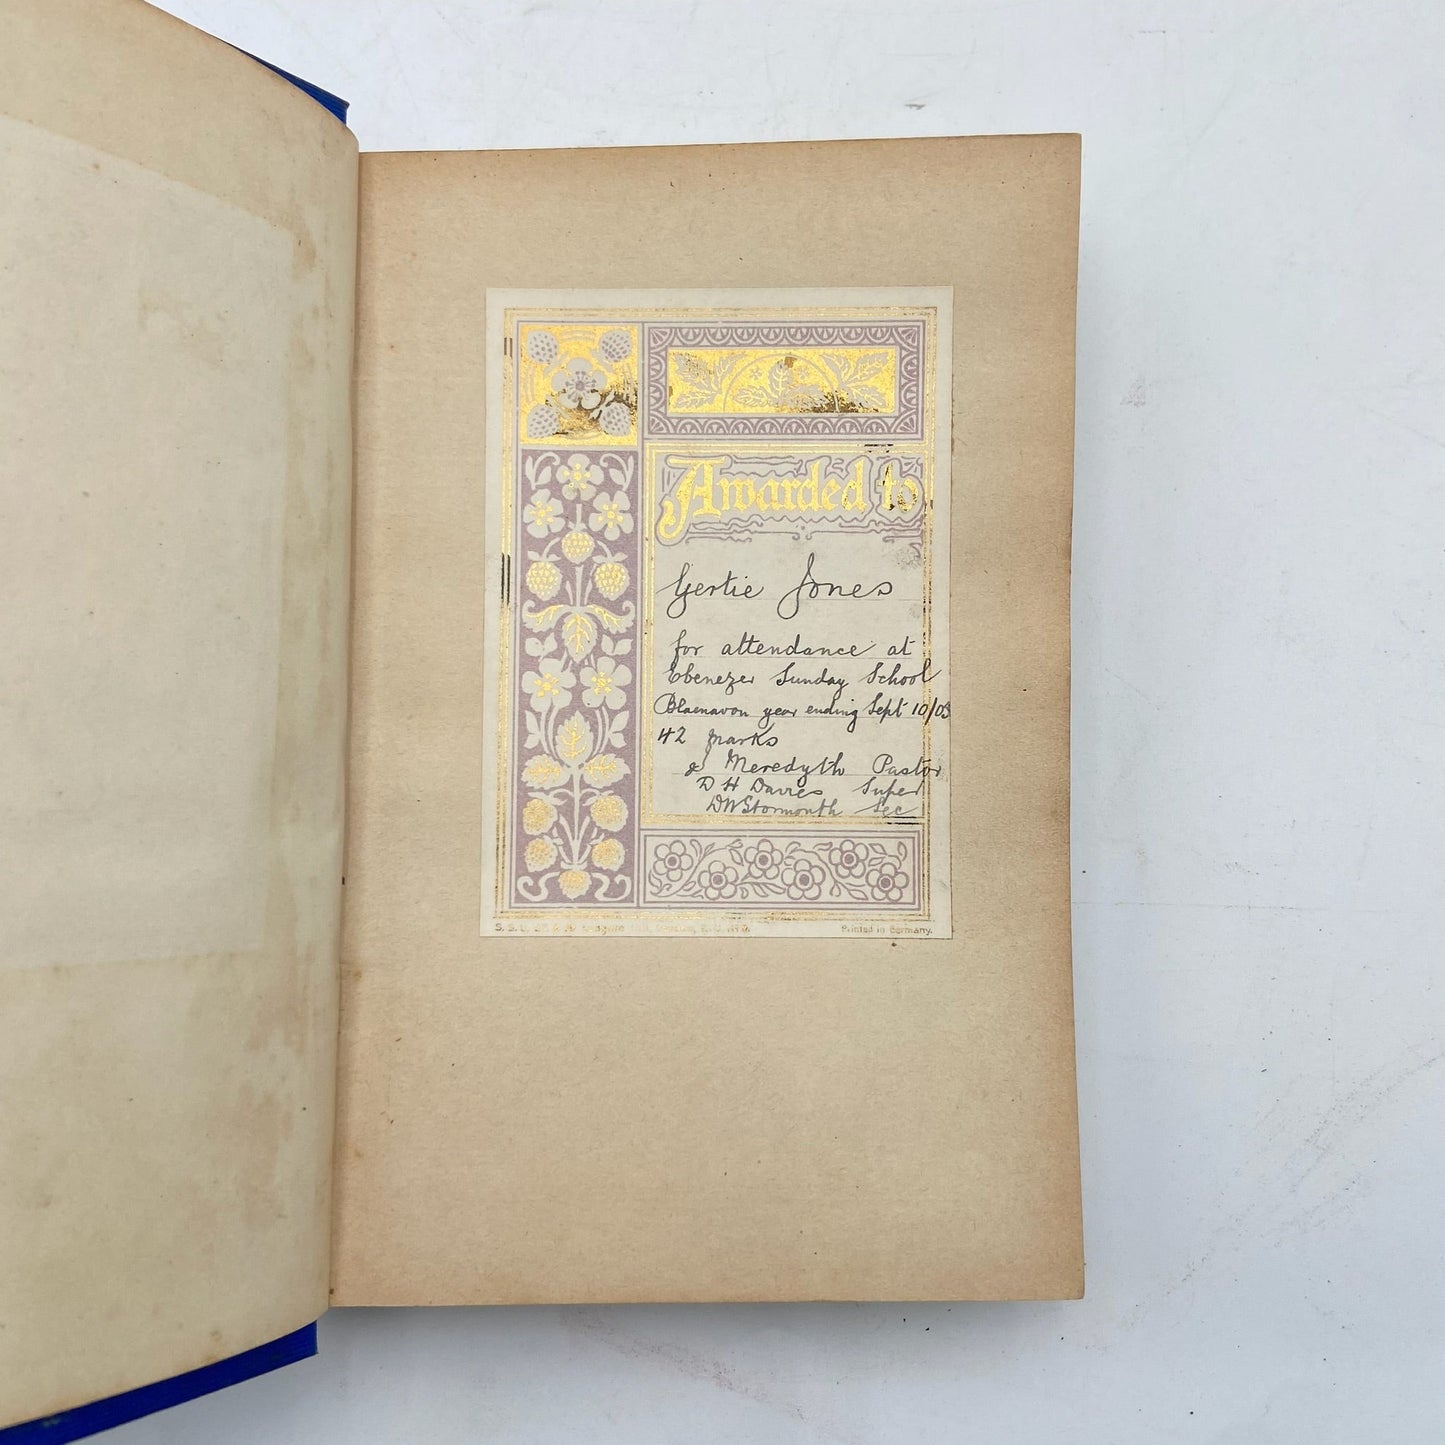 Awarded to
Gertie Jones
for attendance at
Ebenezer Sunday School
Blaenavon year ending Sept 10/03
42 marks
Meredyth Pastor
D H Davies Super
DW Stormonth Sec
S. S. U.
Printed in Germany.